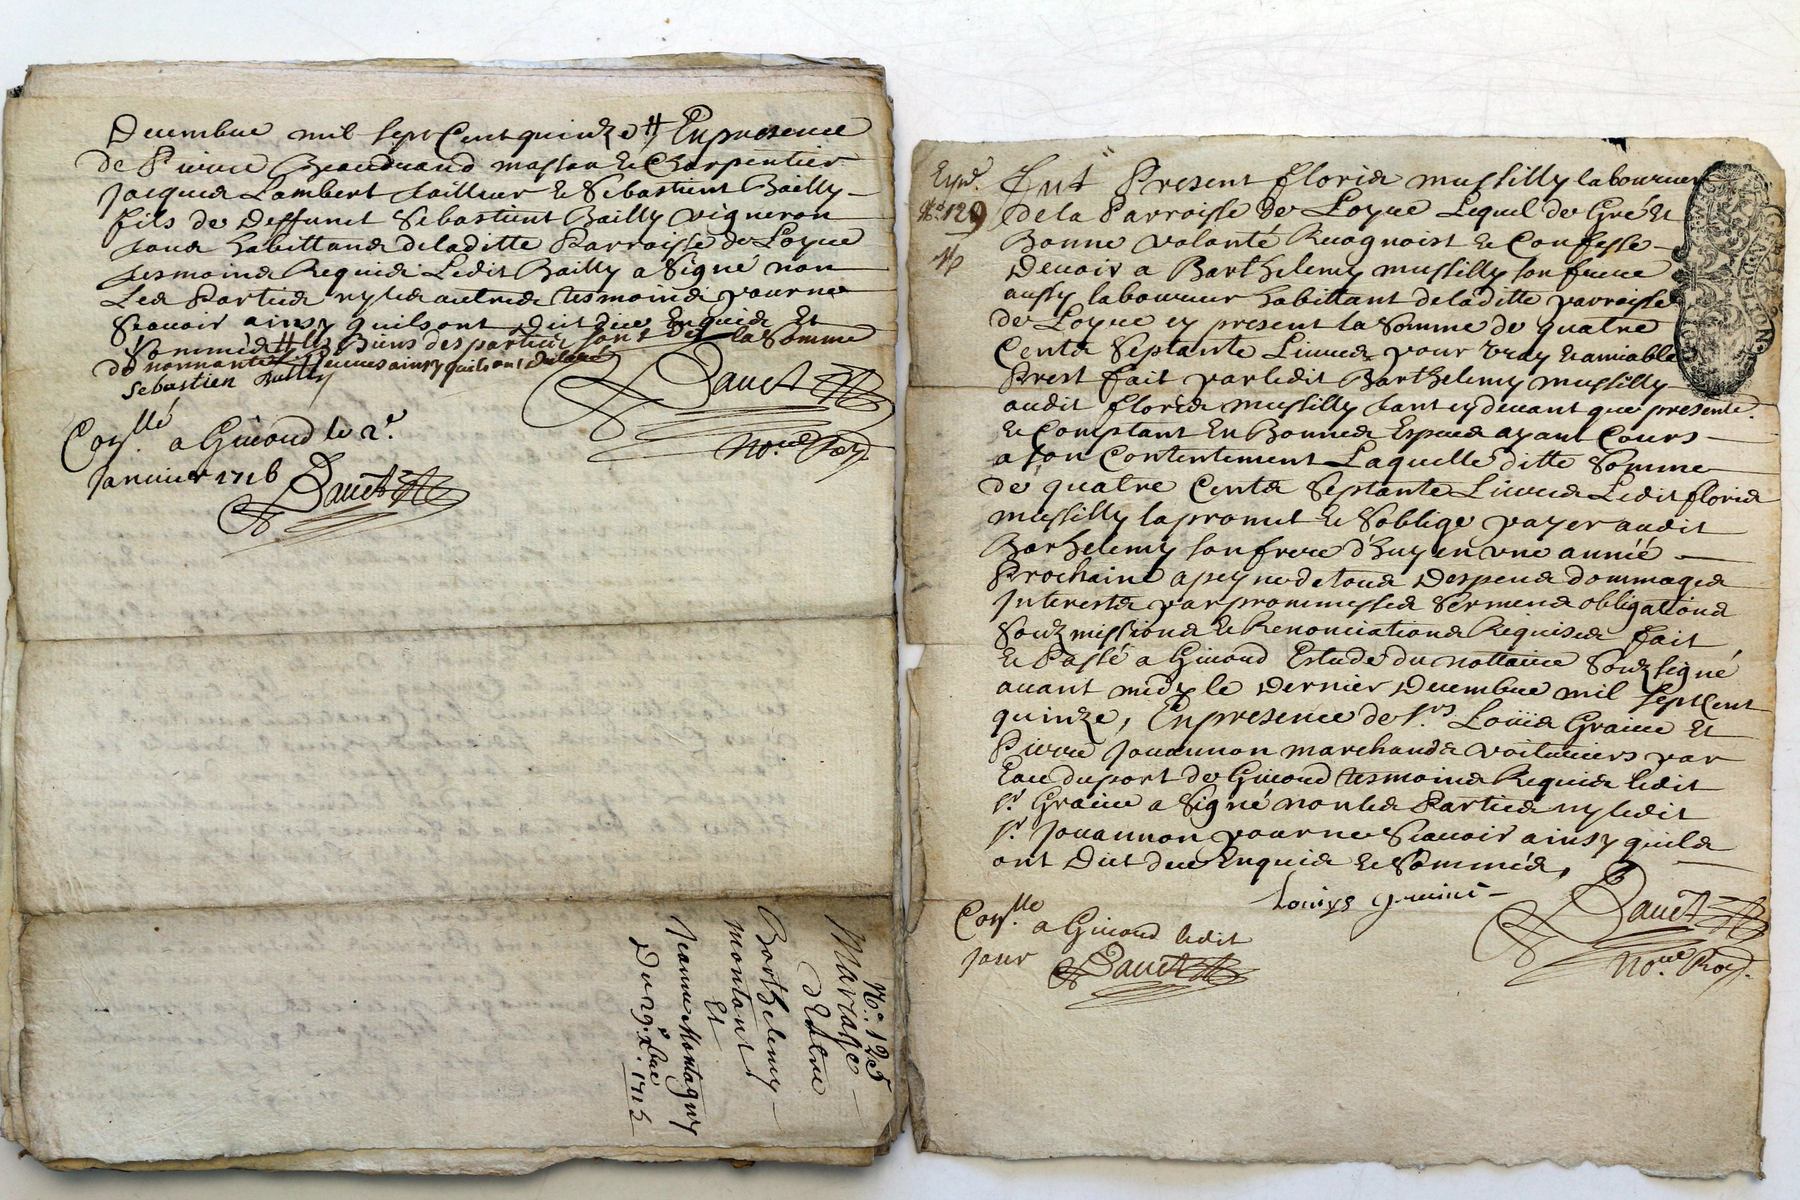 Decembre mil sept Cent quinze # En presence
de Pierre Beaudrand masson & Charpentier
Jacques Lambert tailleur & Sebastient Bailly
fils de deffunct Sebastient Bailly vigneron
tous habittans de laditte Parroisse de Loyre
tesmoins Requis Ledit Bailly a Signé non
Les Parties ny les autres tesmoins pour ne
Scavoir ainsy quils ont dict de ce Enquis Et
Sommés # les Biens des parties sont de la Somme
de ainsy quils ont déclaré
Sebastien Bailly
Dauct
no.re Roy.
Con.llé a Givord le 2.e
Janvier 1716
Dauct
N.o 125
Mariage
d'Entre
Barthelemy
montant
Et
Jeanne Montagny
Du 29.e X.bre 1715
Exp.é
N.o 129
Fut Present floris mussilly laboureur
de la Parroisse de Loyre Lequel de Gré Et
Bonne volanté Recognoist & Confesse
Devoir a Barthelemy mussilly son frere
aussy laboureur habittant de laditte parroisse
de Loyre cy present la Somme de quatre
Cents Septante Livres pour vray & amiable
Prest fait par ledit Barthelemy mussilly
audit floris mussilly tant cy devant que presente.
& Comptant En Bonnes Especes ayant Cours
a son Contentement Laquelle ditte Somme
de quatre Cents Septante Livres Ledit floris
mussilly la promet & Soblige payer audit
Barthelemy son frere d'huy en une année
Prochaine a peyne de tous Despens dommages
Interests par prommesses Serments obligations
Soubzmissions & Renonciations Requises fait
& Passé a Givord Estude du nottaire Soubzsigné
avant midy le Dernier Decembre mil sept Cent
quinze, En presence de s.rs Loüis Graive Et
Pierre Jouannon marchands voituriers par
Eau du port de Givord tesmoins Requis ledit
s.r Graive a Signé non les Parties ny ledit
s.r Jouannon pour ne Scavoir ainsy quils
ont Dict de ce Enquis & Sommés,
Louiys
Dauct
no.re Roy.
Con.llé a Givord ledit
jour
Dauct